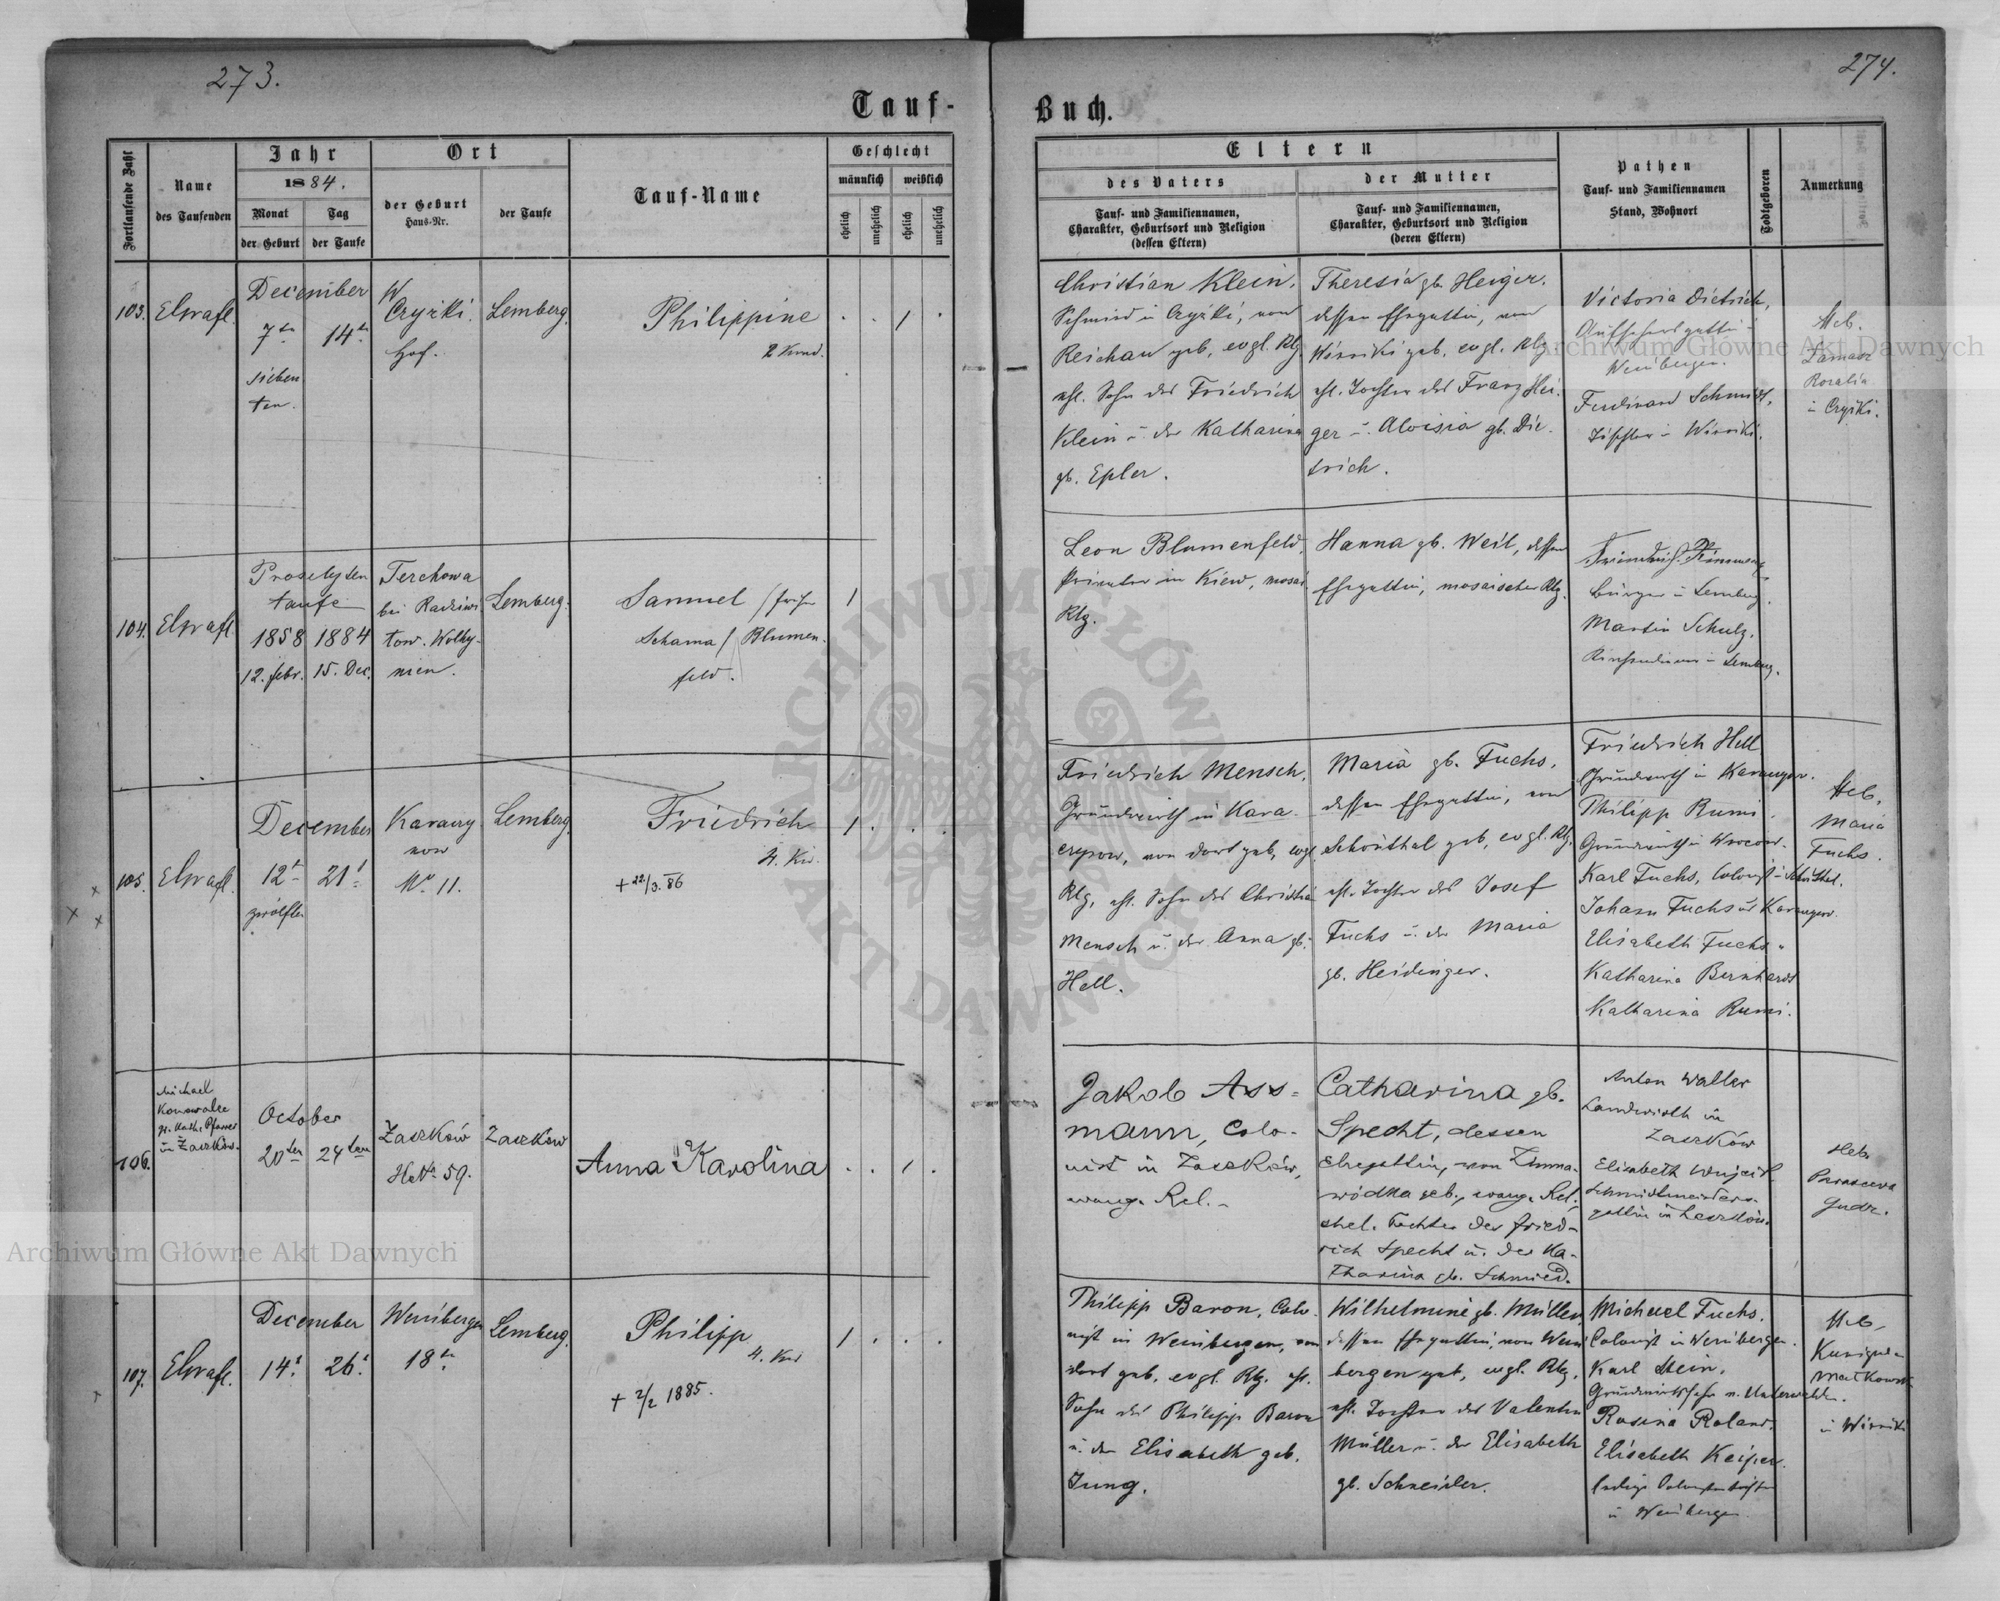 273.
274.
Tauf-
Buch.
Fortlaufende Zahl
Name
des Taufenden
Jahr
1884.
Monat
Tag
der Geburt
der Taufe
Ort
der Geburt
Haus-Nr.
der Taufe
Tauf-Name
Geschlecht
männlich
weiblich
ehelich
unehelich
ehelich
unehelich
Eltern
des Vaters
Tauf- und Familiennamen,
Charakter, Geburtsort und Religion
(dessen Eltern)
der Mutter
Tauf- und Familiennamen,
Charakter, Geburtsort und Religion
(deren Eltern)
Pathen
Tauf- und Familiennamen
Stand, Wohnort
Todtgeboren
Anmerkung
103.
December
7ten
14ten
sieben
ten.
Hof.
Lemberg.
Philippine
2 Kind.
1
Christian Klein,
Schmied in
Reichau geb, evgl. Rlg
ehl. Sohn des Friedrich
Klein u. der Katharina
gb. Epler.
Theresia gb. Heiger.
dessen Ehegattin, von
Winniki geb. evgl. Rlg
ehl. Tochter des Franz Hei-
ger u. Aloisia gb. Die-
trich.
Victoria Dietrich,
Weinbergen.
Ferdinand Schmidt,
Tischler in Winniki.
Heb.
Rozalia
104.
Proselyten
taufe
1858 1884
12. febr. 15. Dec.
Terchowa
bei
tow. Wolhy-
nien.
Lemberg.
Samuel /früher
Schama/ Blumen-
feld.
1
Leon Blumenfeld,
Privater in Kiew, mosai
Rlg.
Hanna gb. Weil, dessen
Ehegattin, mosaischer Rlg.
Bürger in Lemberg.
Martin Schulz,
Kirchendiener in Lemberg.
105.
December
12t
21t
zwölften
Karaczy
now
No 11.
Lemberg.
Friedrich
4. Kin.
+ 22/3. 86
1
Friedrich Mensch,
Grundwirth in Kara-
czynow, von dort geb, evgl.
Rlg, ehl. Sohn des Christian
Mensch u. der Anna gb.
Hell.
Maria gb. Fuchs,
dessen Ehegattin, von
Schönthal geb, evgl. Rlg,
ehl. Tochter des Josef
Fuchs u. der Maria
gb. Heidinger.
Friedrich Hell
Grundwirth in Karaczynow.
Philipp Rumi,
Grundwirth in
Karl Fuchs, Colonist in Schönthal.
Johann Fuchs in Karaczynow.
Elisabeth Fuchs
Katharina Bernhardt
Katharina Rumi.
Heb.
Maria
Fuchs.
106.
Michael
Konowalec
gr. kath. Pfarrer
in Żaszków.
October
20ten
24ten
Żaszków
HsNo 59.
Żaszków
Anna Karolina
1
Jakob Ass-
mann, Colo-
nist in Zaszków,
evang. Rel.-
Catharina gb.
Specht, dessen
Ehegattin, von Zimna-
wódka geb., evang. Rel,
ehel. Tochter der Fried-
rich Specht u. der Ka-
tharina gb. Schmied.
Anton Walter
Landwirth in
Zaszków
Elisabeth
Schmidtmeisters-
gattin in Zaszków.
Heb.
107.
December
14t
26t
Weinbergen
18ten
Lemberg.
Philipp
4. Kind
+ 2/2 1885.
1
Philipp Baron, Colo-
nist in Weinbergen, von
dort geb. evgl. Rlg. ehl.
Sohn des Philipp Baron
u. der Elisabeth geb.
Jung.
Wilhelmine gb. Müller,
dessen Ehegattin, von Wein
bergen geb, evgl. Rlg,
ehl. Tochter des Valentin
Müller u. der Elisabeth
gb. Schneider.
Michael Fuchs,
Colonist in Weinbergen.
Karl Stein,
Rosina Roland,
Elisabeth Keiper
in Weinbergen
Heb
in Winniki
Archiwum Główne Akt Dawnych
Archiwum Główne Akt Dawnych
ARCHIWUM GŁÓWNE
AKT DAWNYCH